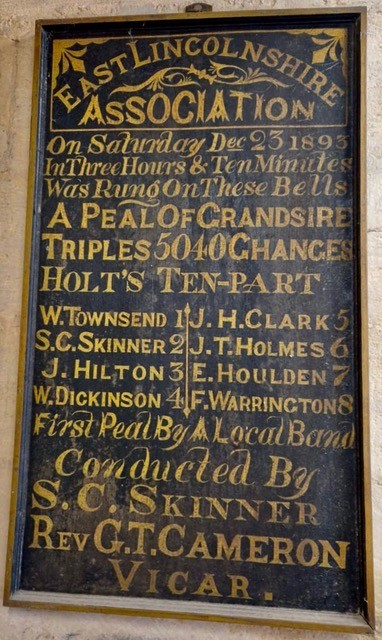 EAST LINCOLNSHIRE
ASSOCIATION
On Saturday Dec 23 1893
In Three Hours & Ten Minutes
Was Rung On These Bells
A PEAL OF GRANDSIRE
TRIPLES 5040 CHANGES
HOLT'S TEN-PART
W. TOWNSEND 1 J. H. CLARK 5
S. C. SKINNER 2 J. T. HOLMES 6
J. HILTON 3 E. HOULDEN 7
W. DICKINSON 4 F. WARRINGTON 8
First Peal By A Local Band
Conducted By
S. C. SKINNER
REV G. T. CAMERON
VICAR.